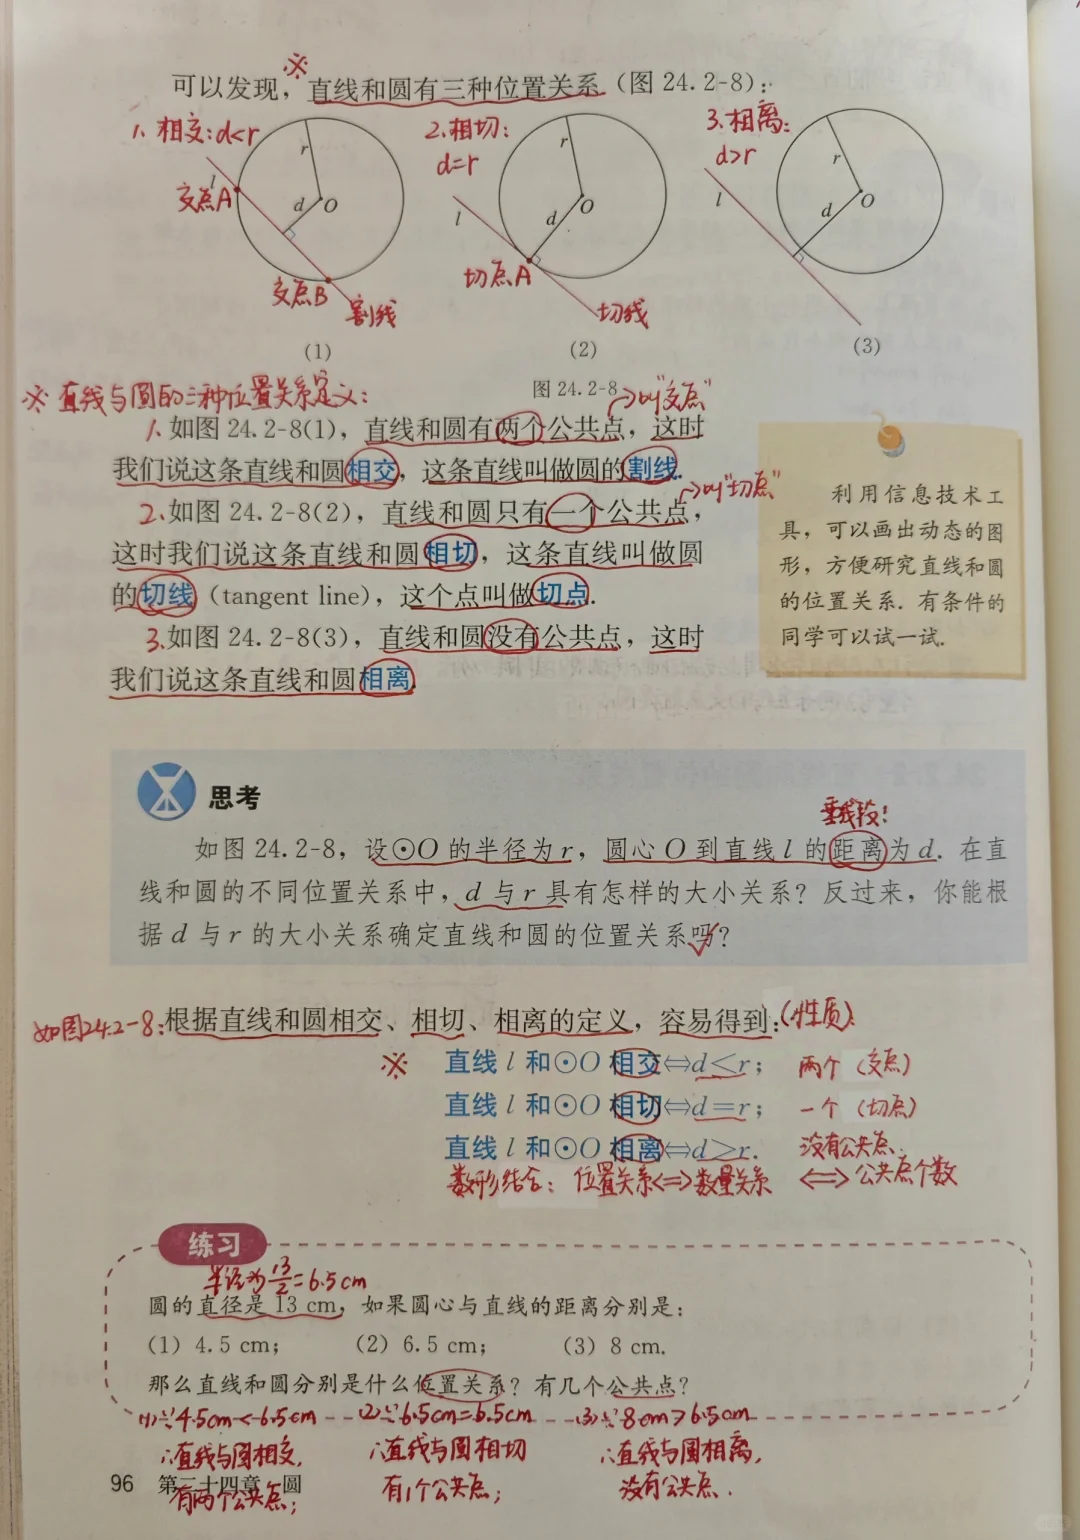 ※
可以发现，直线和圆有三种位置关系（图 24.2-8）：
1. 相交：d<r
2.相切：
d=r
3.相离：
d>r
r
l
d
O
交点A
交点B
割线
r
l
d
O
切点A
切线
r
l
d
O
(1)
(2)
(3)
图 24.2-8
→叫"交点"
※ 直线与圆的三种位置关系定义：
1.如图 24.2-8(1)，直线和圆有两个公共点，这时
我们说这条直线和圆相交，这条直线叫做圆的割线.
→叫"切点"
2.如图 24.2-8(2)，直线和圆只有一个公共点，
这时我们说这条直线和圆相切，这条直线叫做圆
的切线（tangent line），这个点叫做切点.
3.如图 24.2-8(3)，直线和圆没有公共点，这时
我们说这条直线和圆相离.
利用信息技术工
具，可以画出动态的图
形，方便研究直线和圆
的位置关系. 有条件的
同学可以试一试.
思考
垂线段!
如图 24.2-8，设⊙O 的半径为 r，圆心 O 到直线 l 的距离为 d. 在直
线和圆的不同位置关系中，d 与 r 具有怎样的大小关系？反过来，你能根
据 d 与 r 的大小关系确定直线和圆的位置关系吗？
如图24.2-8：根据直线和圆相交、相切、相离的定义，容易得到：(性质):
※ 直线 l 和⊙O 相交⇔d<r； 两个（交点）
直线 l 和⊙O 相切⇔d=r； 一个（切点）
直线 l 和⊙O 相离⇔d>r. 没有公共点、
数形结合：位置关系<=>数量关系 <=> 公共点个数
练习
半径为13/2=6.5cm
圆的直径是 13 cm，如果圆心与直线的距离分别是：
(1) 4.5 cm； (2) 6.5 cm； (3) 8 cm.
那么直线和圆分别是什么位置关系？有几个公共点？
(1)∵4.5cm<6.5cm (2)∵6.5cm=6.5cm (3)∵8cm>6.5cm
∴直线与圆相交， ∴直线与圆相切 ∴直线与圆相离，
有两个公共点； 有1个公共点； 没有公共点.
96 第二十四章 圆